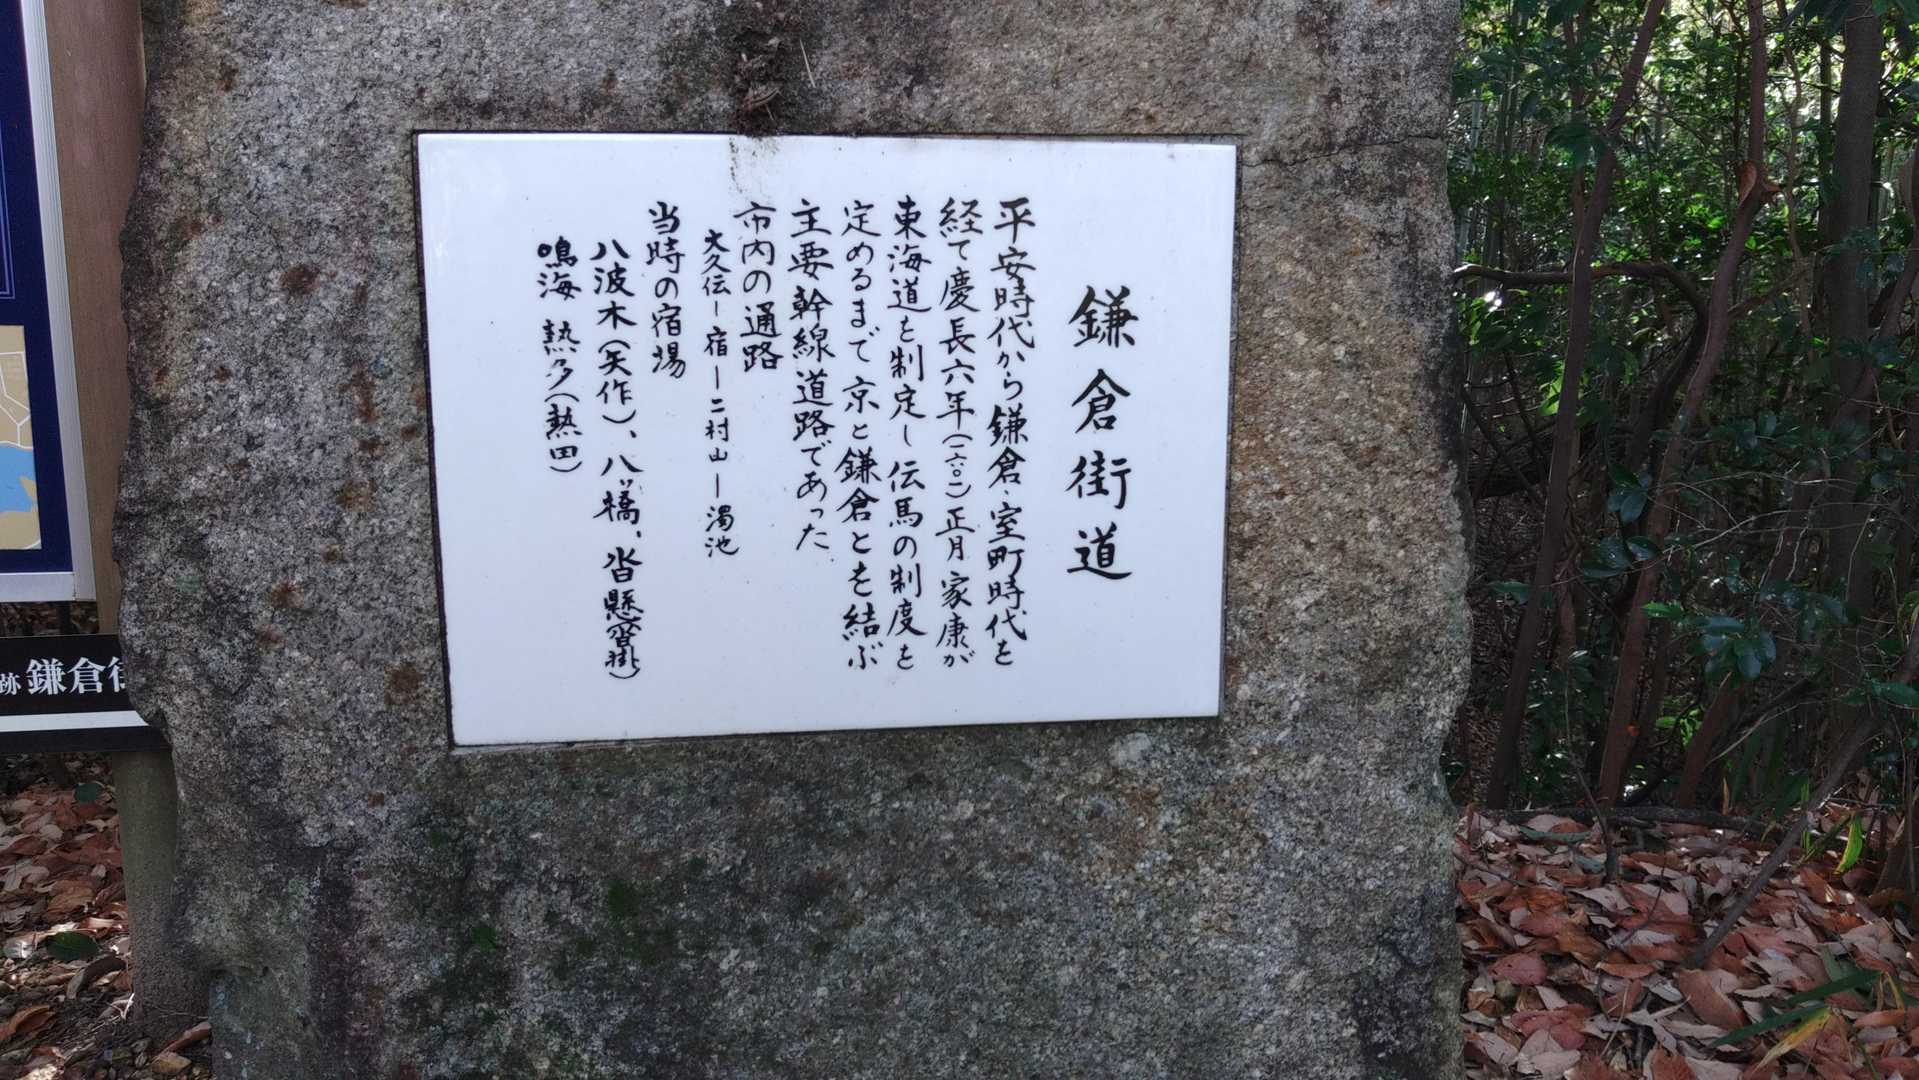 鎌倉街道
平安時代から鎌倉、室町時代を
経て慶長六年(一六〇一)正月家康が
東海道を制定し伝馬の制度を
定めるまで京と鎌倉とを結ぶ
主要幹線道路であった
市内の通路
大久伝ー宿ー二村山ー濁池
当時の宿場
八波木(矢作)、八ッ橋、沓懸(沓掛)
鳴海 熱多(熱田)
跡 鎌倉街